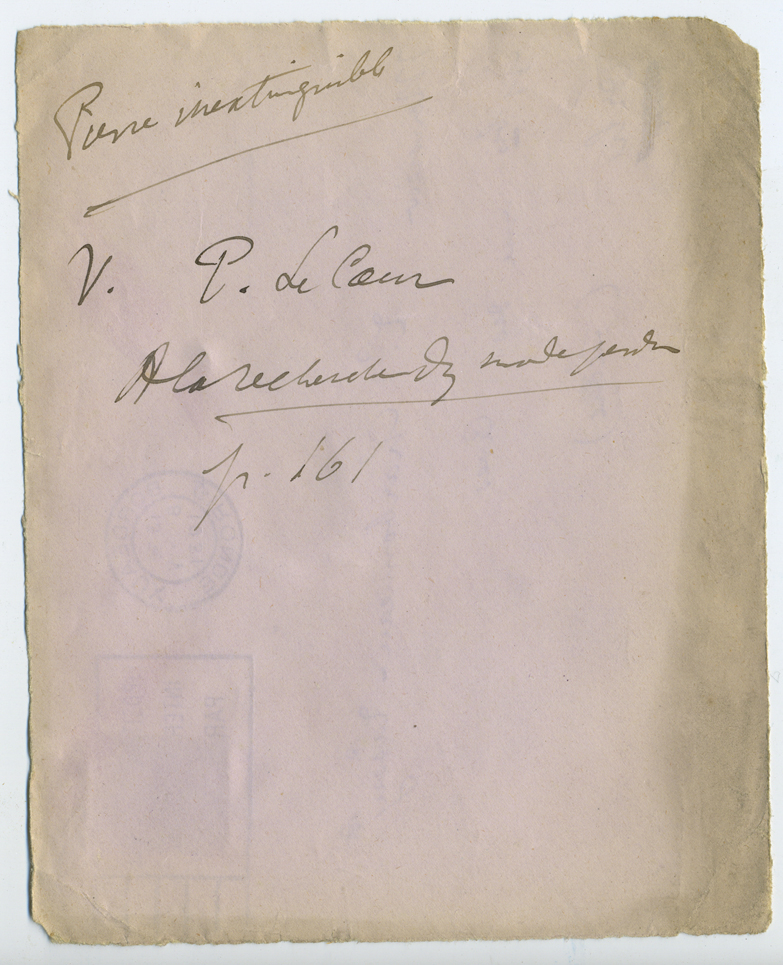 Pierre inextinguible
V. P. Le Cœur
A la recherche d'un monde perdu
p. 161